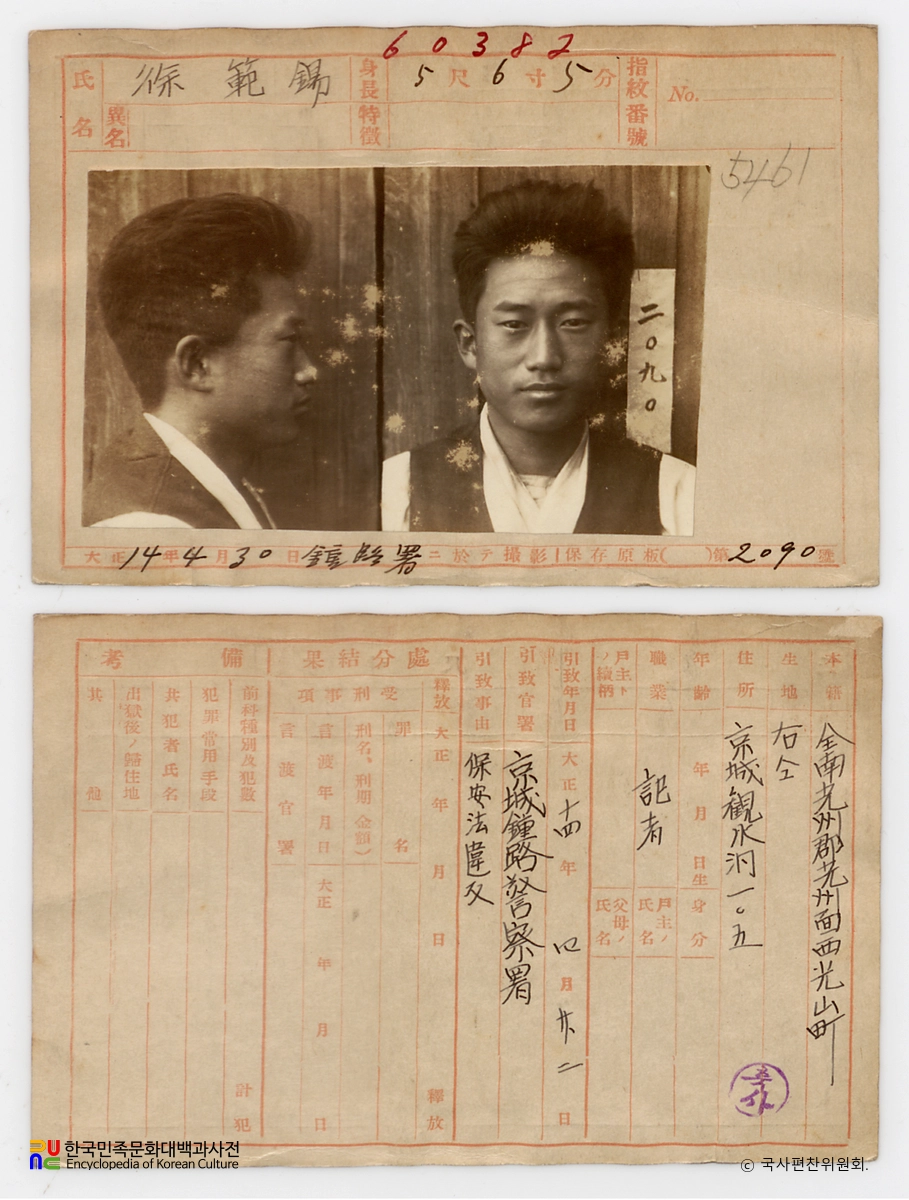 60382
氏名 徐範錫 身長 5尺6寸5分 指紋番號 No.
異名 特徵
5461
二〇九〇
大正14年4月30日鍾路署ニ於テ撮影 保存原板( )第2090號
本籍 全南光州郡光州面西光山町
生地 右仝
住所 京城観水洞一〇五
年齡 年月日生 身分
職業 記者 戶主ノ氏名
戶主トノ續柄 父母ノ氏名
引致年月日 大正十四年四月廿二日
引致官署 京城鍾路警察署
引致事由 保安法違反
處分結果
釋放 大正年月日 釋放
受刑事項
罪名
刑名、刑期(金額)
言渡年月日 大正年月日
言渡官署
備考
前科種別及犯數 計犯
犯罪常用手段
共犯者氏名
出獄後ノ歸住地
其他
한국민족문화대백과사전
Encyclopedia of Korean Culture
© 국사편찬위원회.